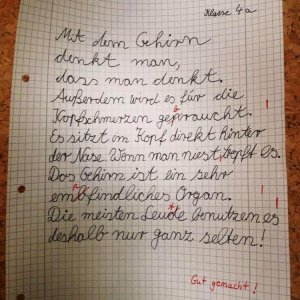 Klasse 4a
Mit dem Gehirn
denkt man,
dass man denkt.
Außerdem wird es für die
Kopfschmerzen gebraucht.
Es sitzt im Kopf direkt hinter
der Nase. Wenn man niest, tropft es.
Das Gehirn ist ein sehr
empfindliches Organ.
Die meisten Leute benutzen es
deshalb nur ganz selten!
Gut gemacht!